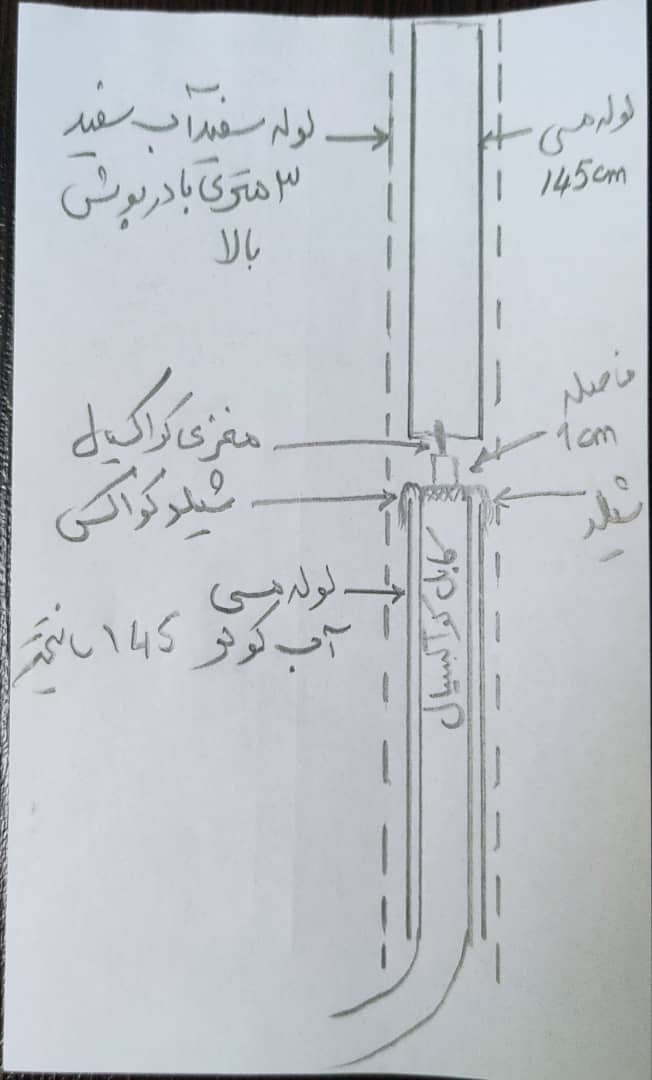 لوله سفید آب سفید
۳ متری با درپوش
بالا
لوله مسی
145cm
فاصله
1cm
مغزی کواکسیال
شیلد کواکس
شیلد
لوله مسی
آب کولر 145 سانتیمتر
کابل کواکسیال